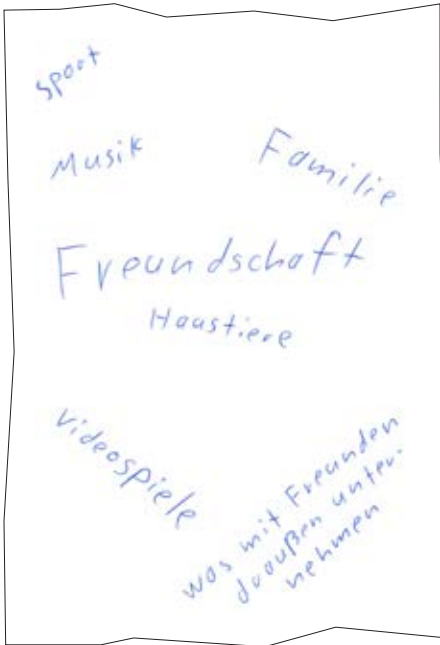 Sport
Musik
Familie
Freundschaft
Haustiere
Videospiele
was mit Freunden
draußen unter-
nehmen